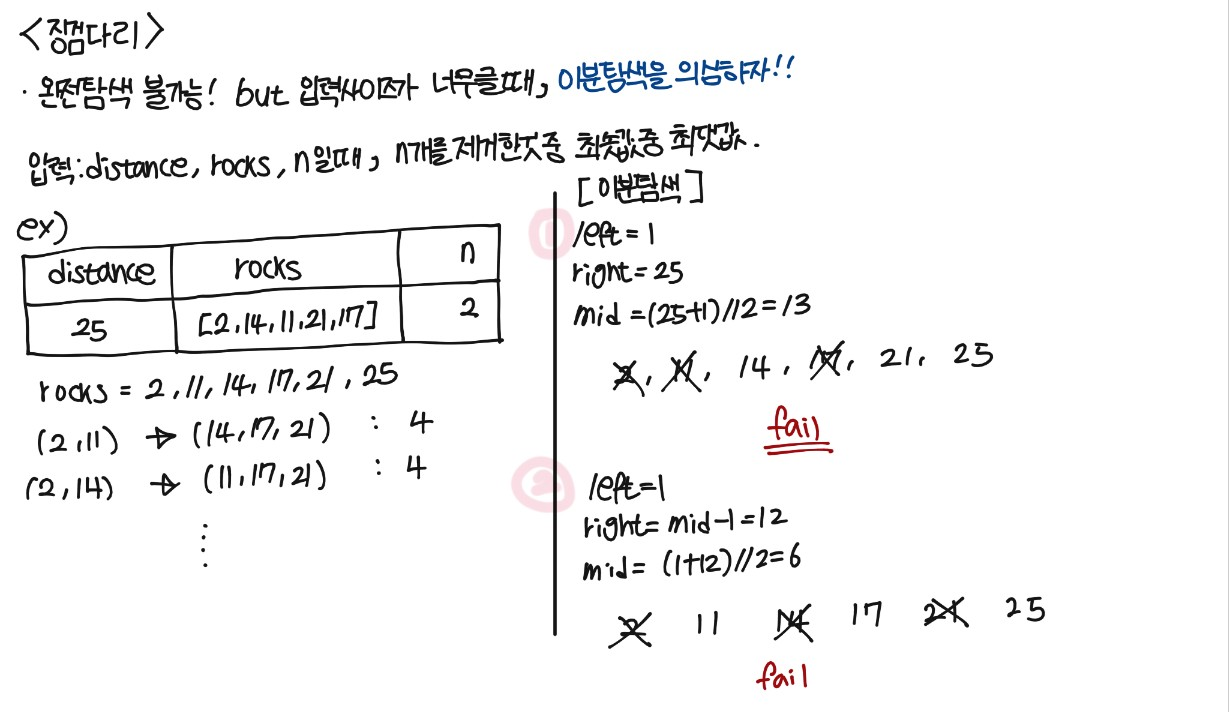 <징검다리>
· 완전탐색 불가능! but 입력사이즈가 너무클때, 이분탐색을 의심하자!!
입력: distance, rocks, n일때, n개를 제거한것중 최솟값중 최댓값.
ex)
distance rocks n
25 [2,14,11,21,17] 2
rocks = 2, 11, 14, 17, 21, 25
(2,11) → (14,17,21) : 4
(2,14) → (11,17,21) : 4
⋮
[이분탐색]
1
left = 1
right = 25
mid = (25+1)//2 = 13
2, 11, 14, 17, 21, 25
fail
2
left = 1
right = mid-1 = 12
mid = (1+12)//2 = 6
2 11 14 17 21 25
fail